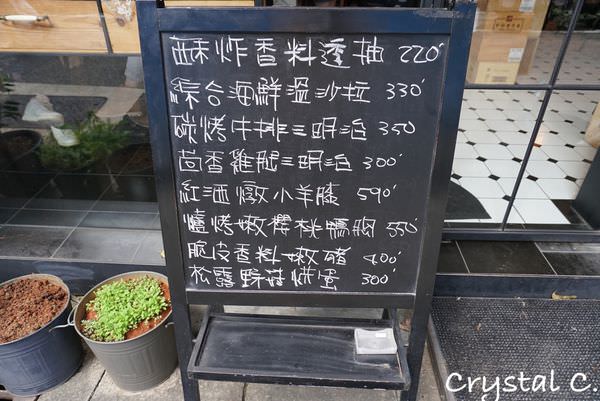 酥炸香料透抽 220'
綜合海鮮溫沙拉 330'
碳烤牛排三明治 350
茴香雞腿三明治 300'
紅酒燉小羊膝 590'
爐烤嫩櫻桃鴨胸 550'
脆皮香料嫩豬 400'
松露野菇烘蛋 300'
Crystal C.